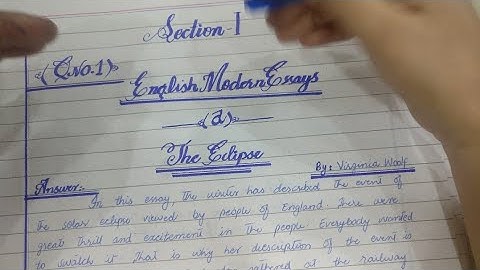 Section-I
(Q.No.1)
English Modern Essays
(a)
The Eclipse
By: Virginia Woolf
Answer:-
In this essay, the writer has described the event of
the solar eclipse viewed by people of England. There were
great thrill and excitement in the people. Everybody wanted
to swatch it. That is why her discription of the event is
gathered at the railway